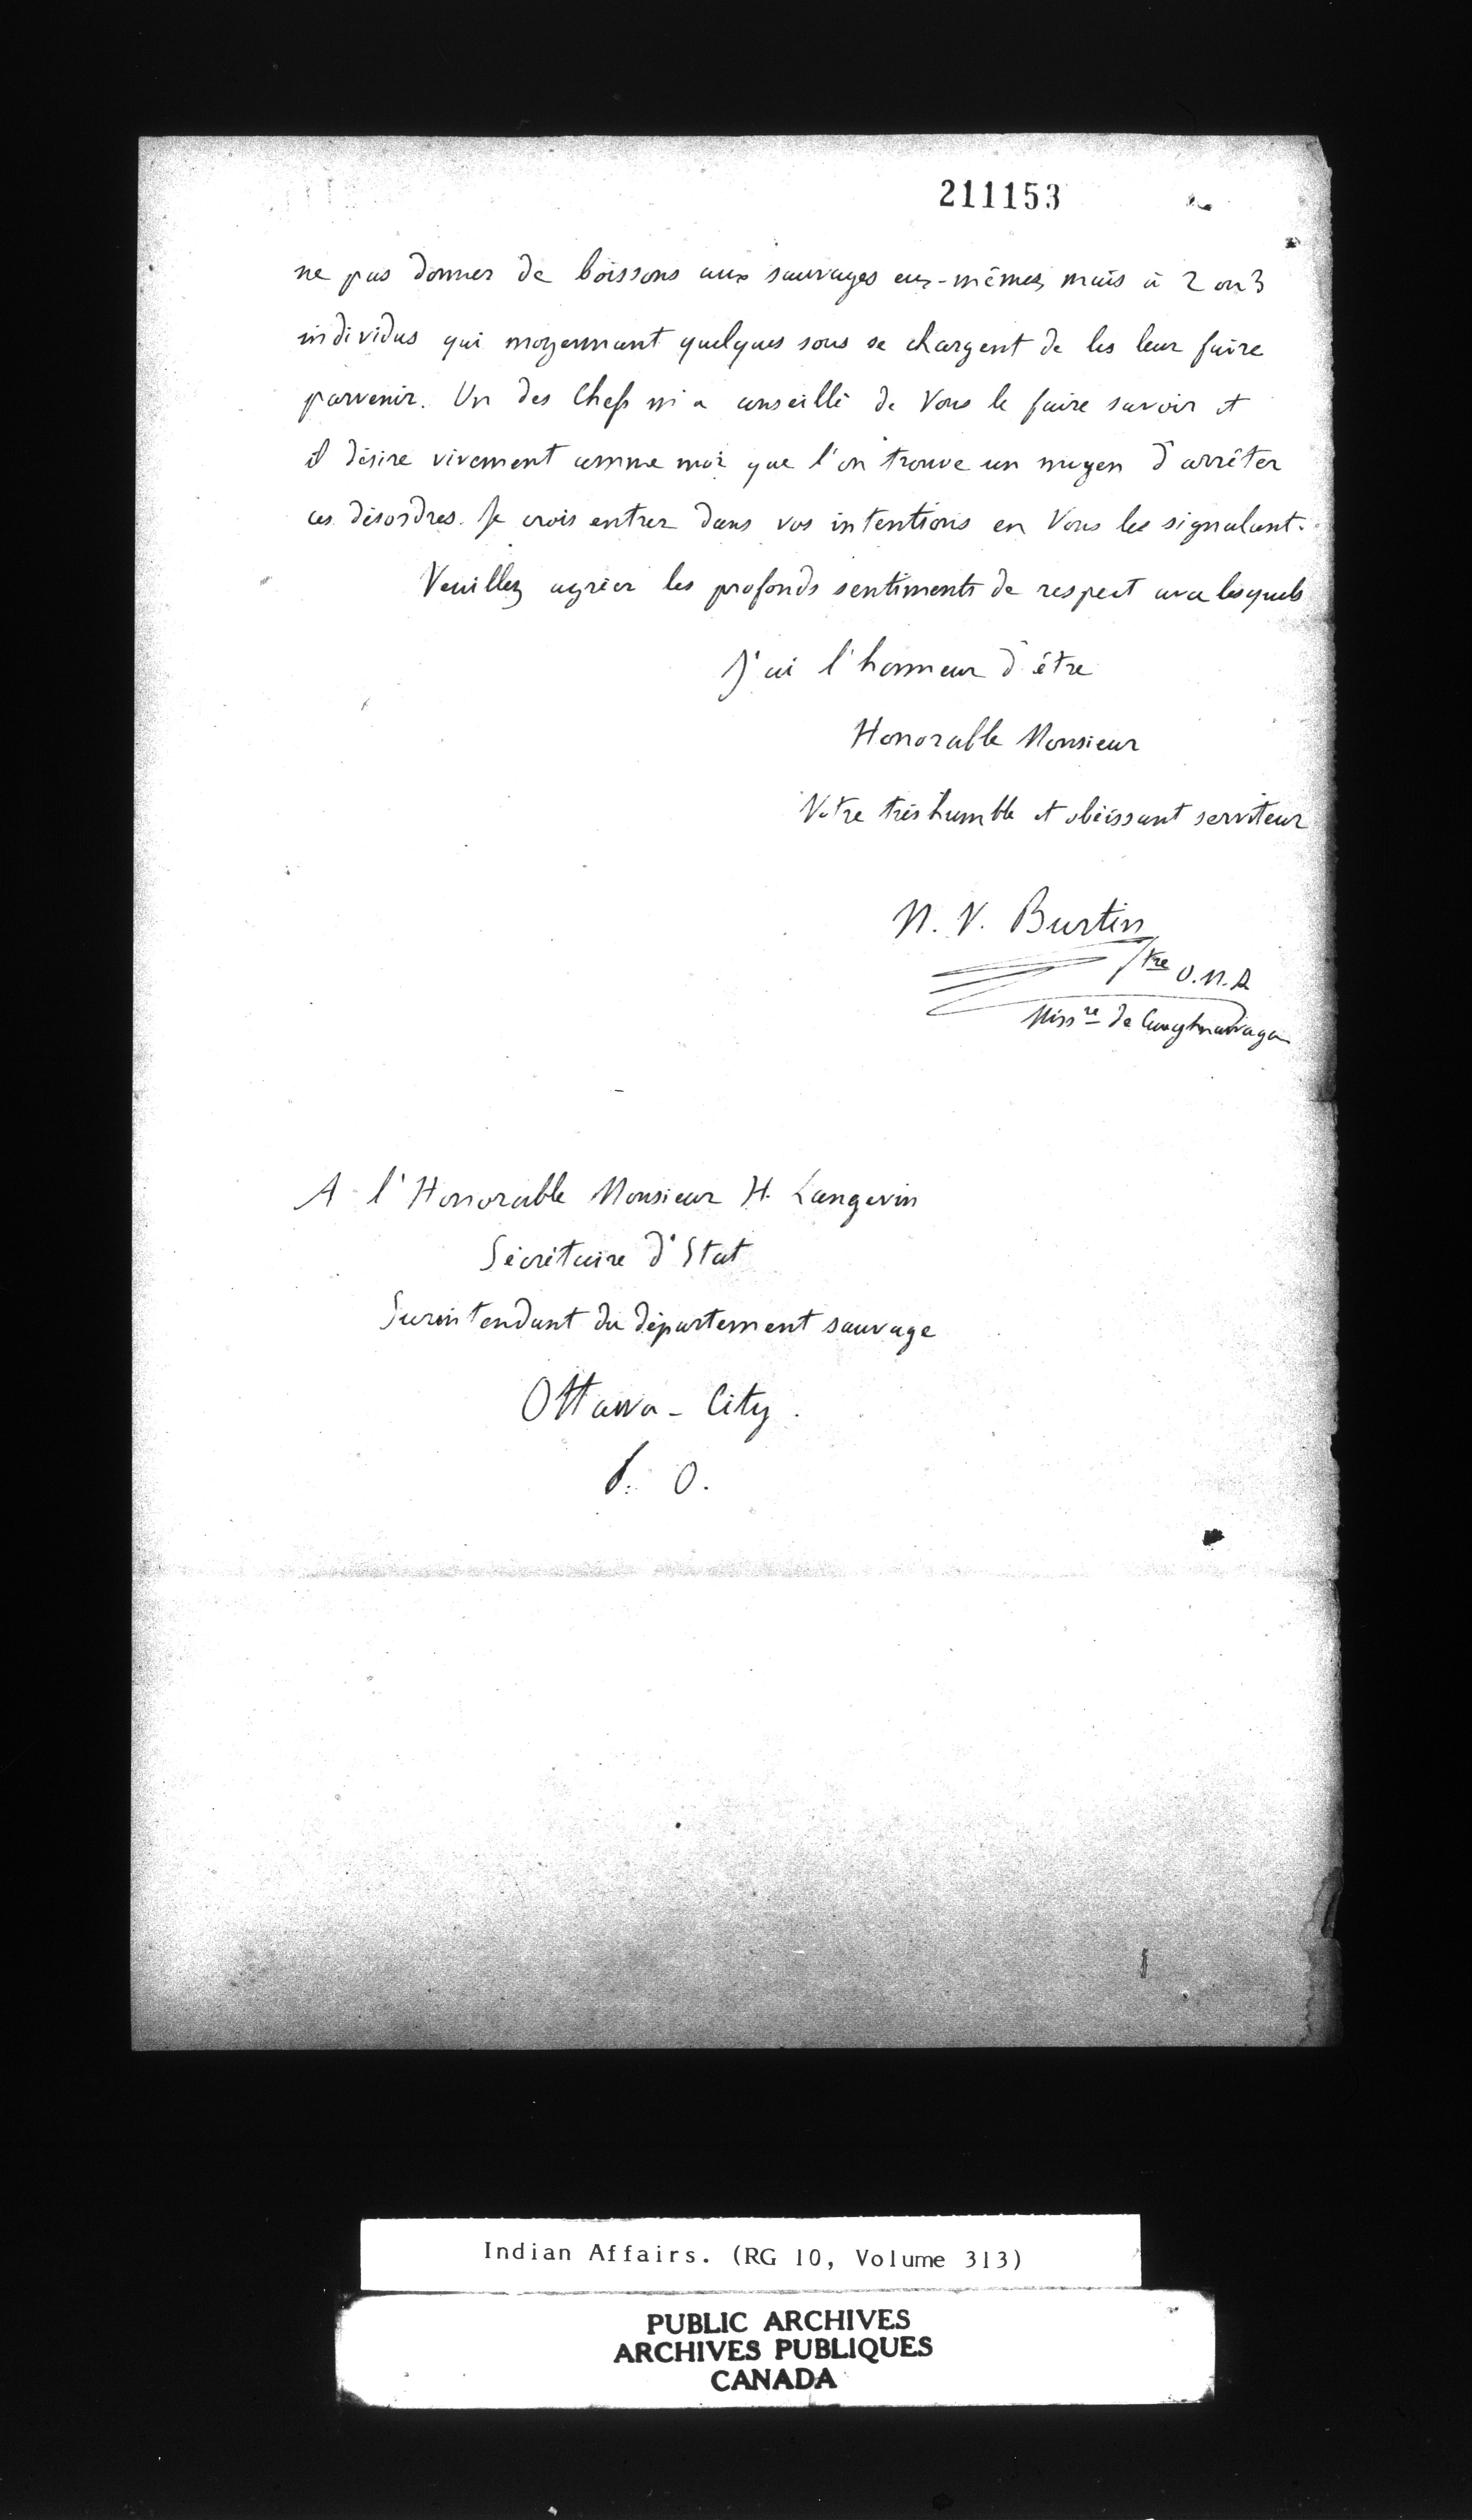 211153
ne pas donner de boissons aux sauvages eux-mêmes, mais à 2 ou 3
individus qui moyennant quelques sous se chargent de les leur faire
parvenir. Un des Chefs m'a conseillé de Vous le faire savoir et
il désire vivement comme moi que l'on trouve un moyen d'arrêter
ces désordres. Je crois entrer dans vos intentions en Vous les signalant.
Veuillez agréer les profonds sentiments de respect avec lesquels
J'ai l'honneur d'être
Honorable Monsieur
Votre très humble et obéissant serviteur
N. V. Burtin
Ptre O.M.I.
Missre de Caughnawaga
A l'Honorable Monsieur H. Langevin
Sécrétaire d'Etat
Surintendant du département sauvage
Ottawa - City.
P. O.
Indian Affairs. (RG 10, Volume 313)
PUBLIC ARCHIVES
ARCHIVES PUBLIQUES
CANADA